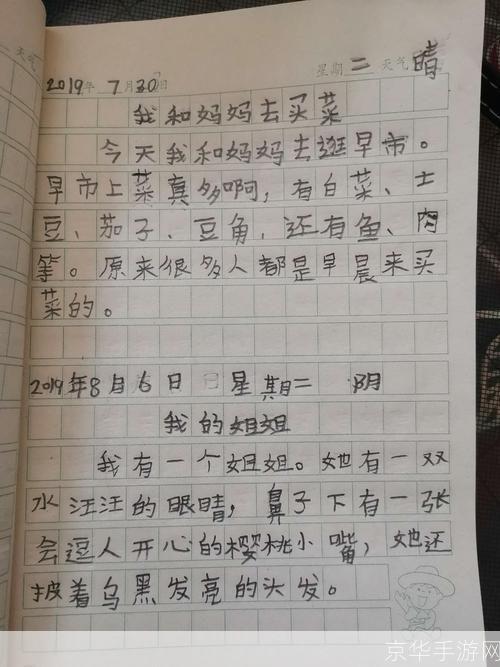 天气
2019年 7月30日 星期二 天气晴
我和妈妈去买菜
今天我和妈妈去逛早市。
早市上菜真多啊，有白菜、土
豆、茄子、豆角，还有鱼、肉
等。原来很多人都是早晨来买
菜的。
2019年8月6日 星期二 阴
我的姐姐
我有一个姐姐。她有一双
水汪汪的眼睛，鼻子下有一张
会逗人开心的樱桃小嘴，她还
披着乌黑发亮的头发。
京华手游网